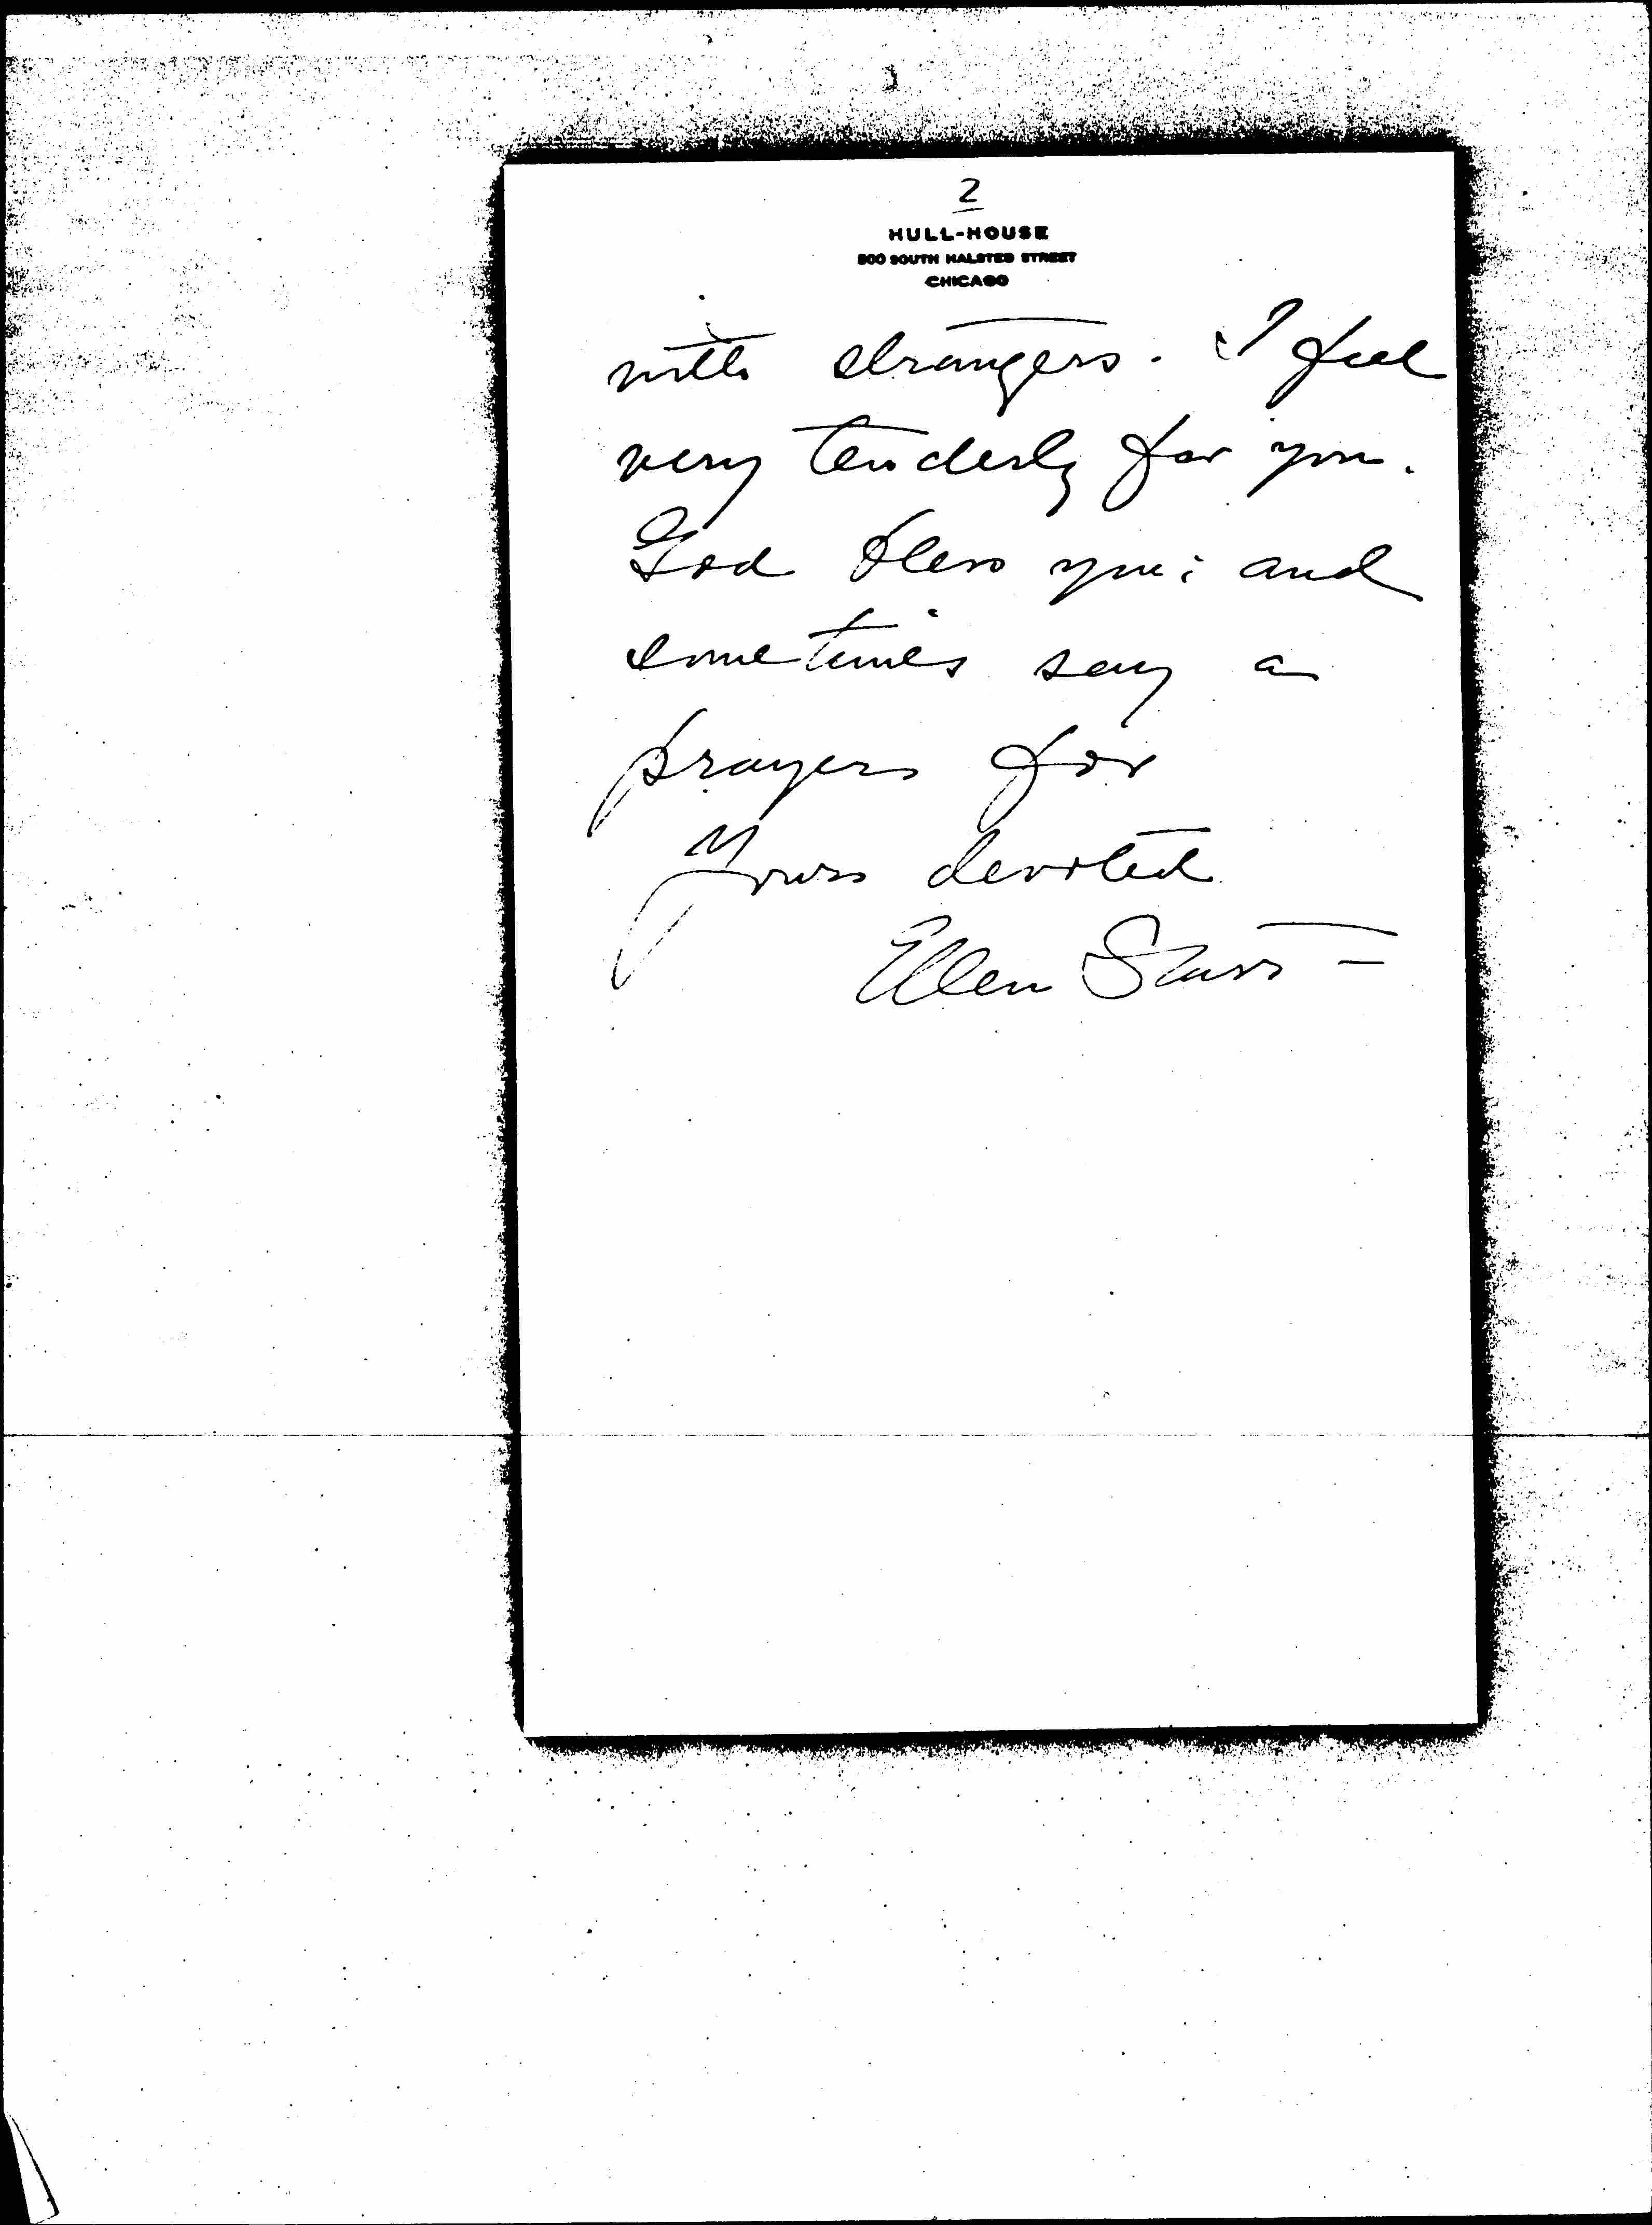 2
HULL-HOUSE
800 SOUTH HALSTED STREET
CHICAGO
with strangers. I feel
very tenderly for you.
God bless you; and
sometimes say a
prayer for
Yours devoted
Ellen Starr -